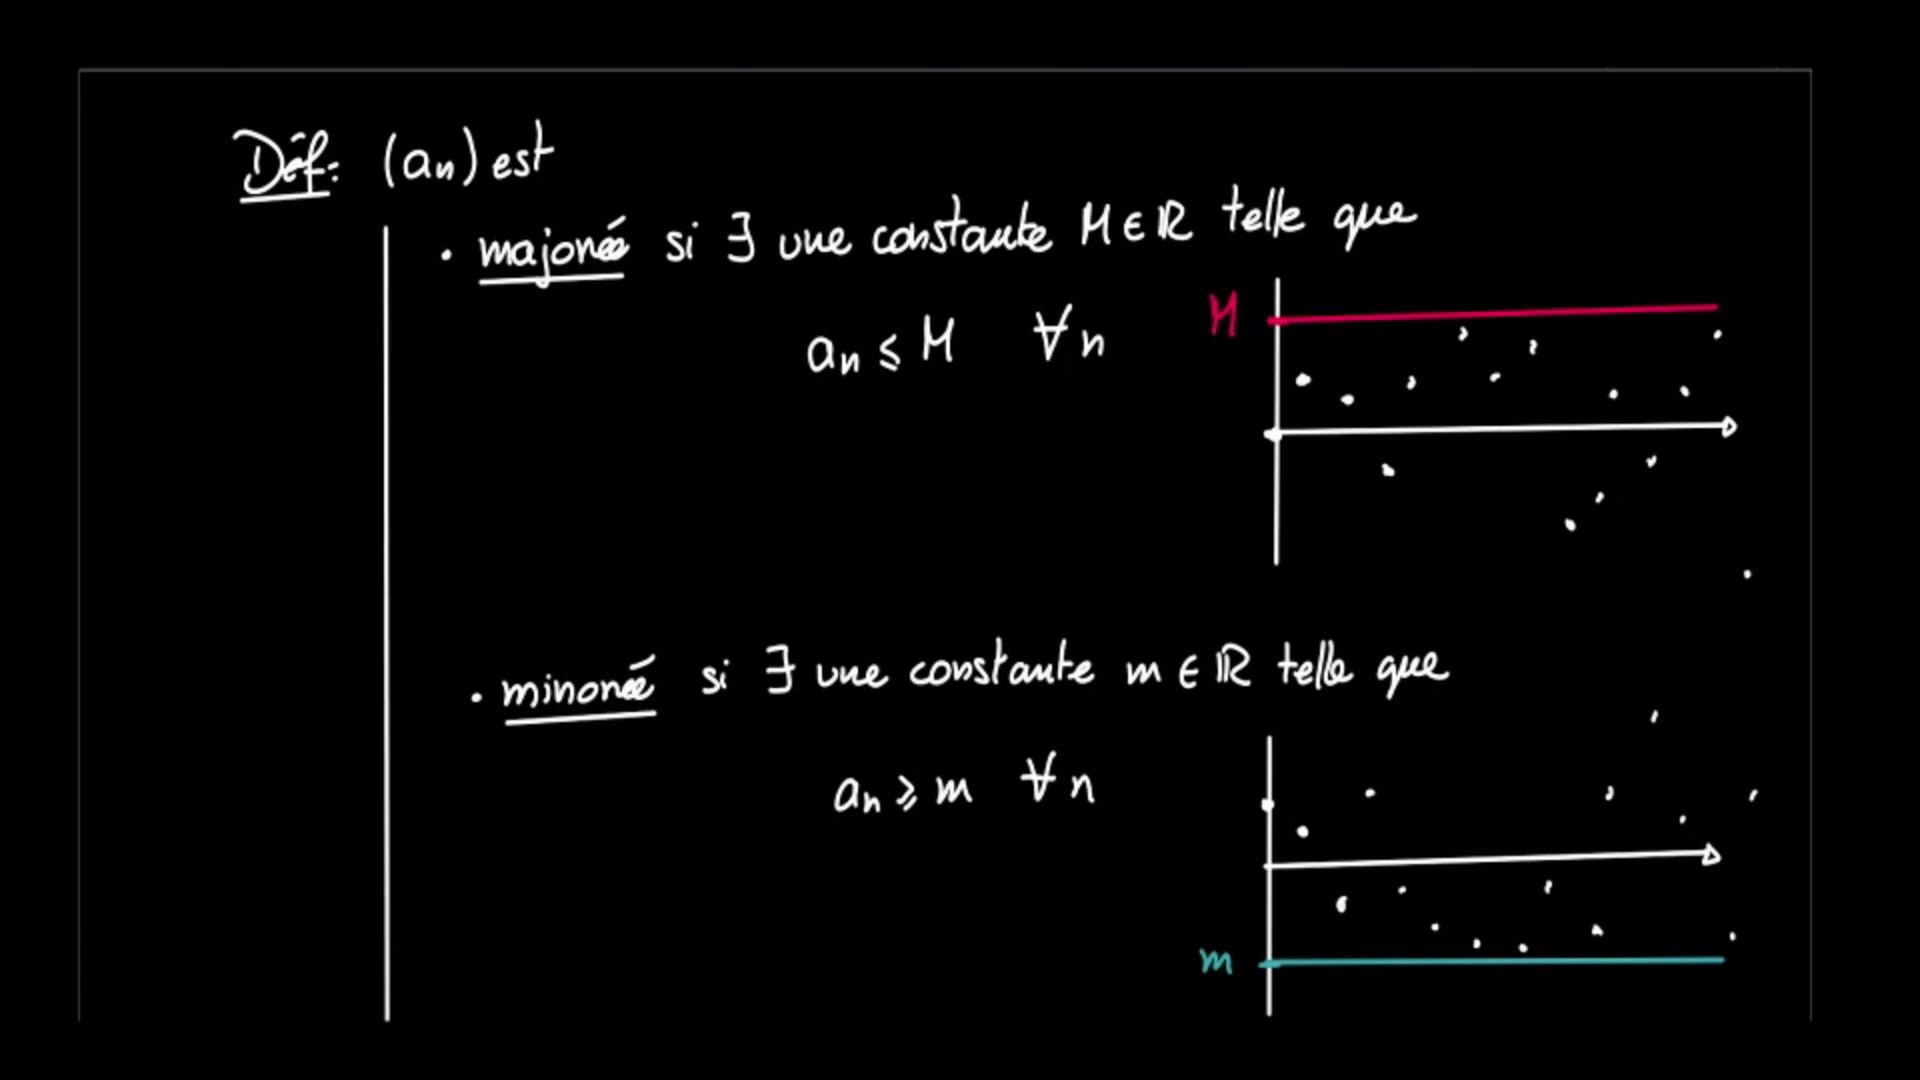 Déf: (aₙ) est
• majorée si ∃ une constante M ∈ ℝ telle que
aₙ ≤ M ∀n
M
• minorée si ∃ une constante m ∈ ℝ telle que
aₙ ≥ m ∀n
m